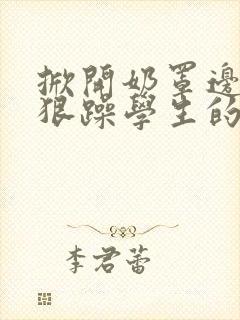 掀開奶罩邊
狠躁學生的
李君蕾